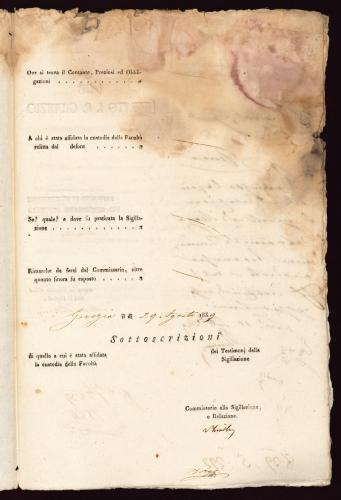 Ove si trova il Contante, Preziosi ed Obbli-
gazioni . . . . . . . . . . . . . "
A chi è stata affidata la custodia della Facoltà
relitta dal defonto . . . . . . . . . "
Se? quale? e dove fu praticata la Sigilla-
zione . . . . . . . . . . . . . . "
"
Ricerche da farsi dal Commissario, oltre
quanto finora fu esposto . . . . . . . "
li di 29 Agosto 1839
Sottoscrizioni
di quello a cui è stata affidata
la custodia della Facoltà.
dei Testimonj della
Sigillazione
Commissario alla Sigillazione,
e Relazione.